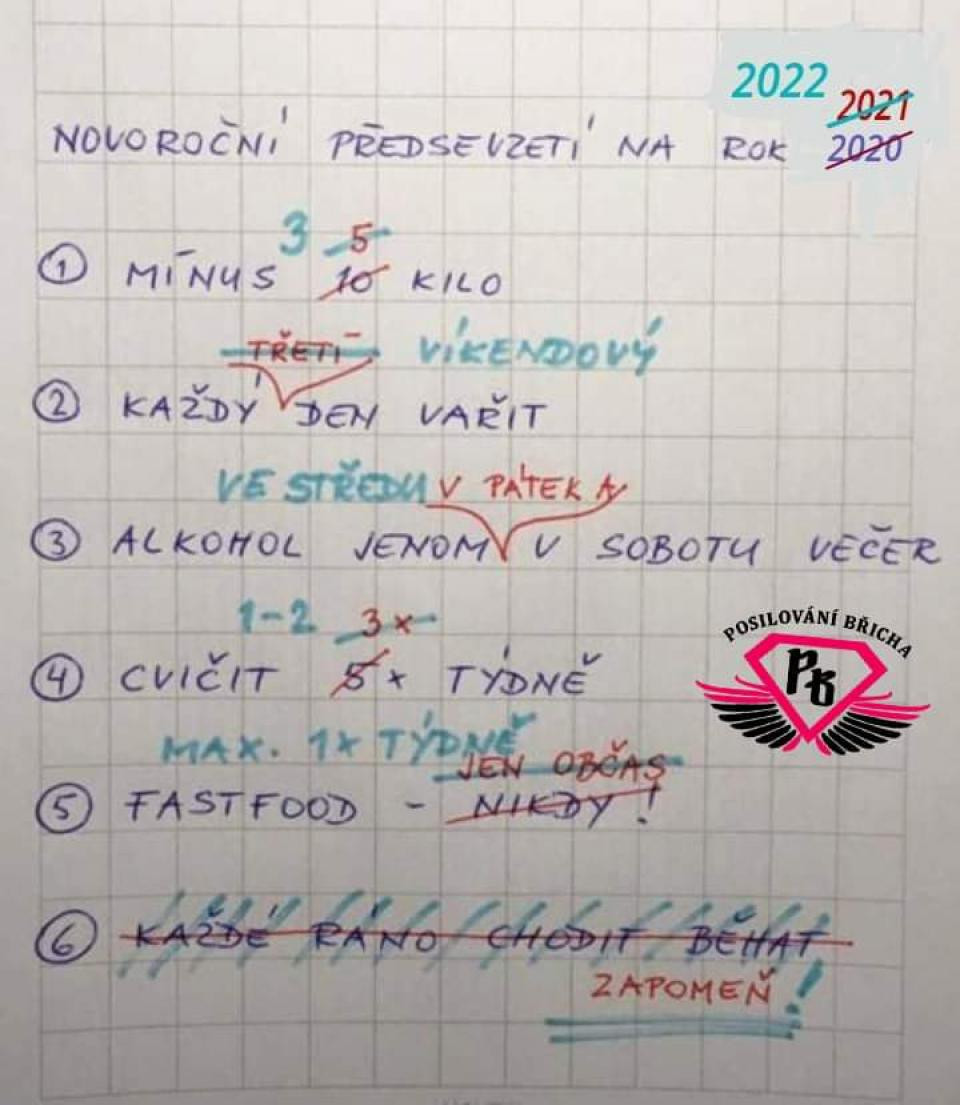 2022 2021
NOVOROČNÍ PŘEDSEVZETÍ NA ROK 2020
3 5
① MÍNUS 10 KILO
TŘETÍ VÍKENDOVÝ
② KAŽDÝ DEN VAŘIT
VE STŘEDU V PÁTEK A
③ ALKOHOL JENOM V SOBOTU VEČER
1-2 3x
POSILOVÁNÍ BŘICHA
PB
④ CVIČIT 5x TÝDNĚ
MAX. 1x TÝDNĚ
JEN OBČAS
⑤ FASTFOOD - NIKDY!
⑥ KAŽDÉ RÁNO CHODIT BĚHAT
ZAPOMEŇ!